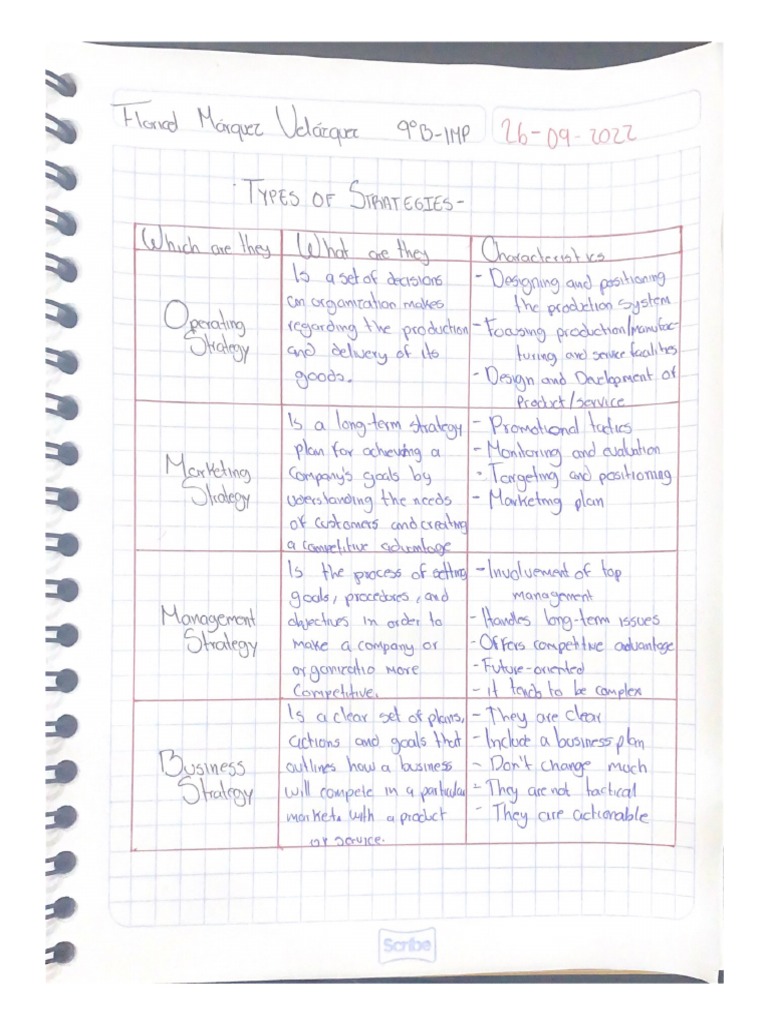 Márquez Velázquez 9°B-IMP 26-09-2022
TYPES OF STRATEGIES-
Which are they What are they Characteristics
Operating
Strategy
Is a set of decisions
an organization makes
regarding the production
and delivery of its
goods.
- Designing and positioning
the production system
- Focusing production/manufac-
turing and service facilities
- Design and Development of
Product/service
Marketing
Strategy
Is a long-term strategy
plan for achieving a
Company's goals by
understanding the needs
of customers and creating
a competitive advantage
- Promotional tactics
- Monitoring and evaluation
- Targeting and positioning
- Marketing plan
Management
Strategy
Is the process of setting
goals, procedures, and
objectives in order to
make a company or
organizatio more
Competitive.
- Involvement of top
management
- Handles long-term issues
- Offers competitive advantage
- Future-oriented
- it tends to be complex
Business
Strategy
Is a clear set of plans,
actions and goals that
outlines how a business
will compete in a particular
market, with a product
or service.
- They are clear
- Include a business plan
- Don't change much
- They are not tactical
- They are actionable
Scribe